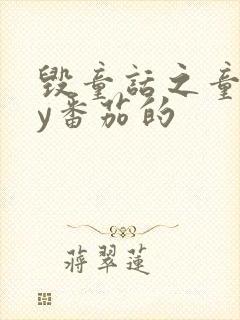 毁童话之童
y番茄的
蒋翠莲